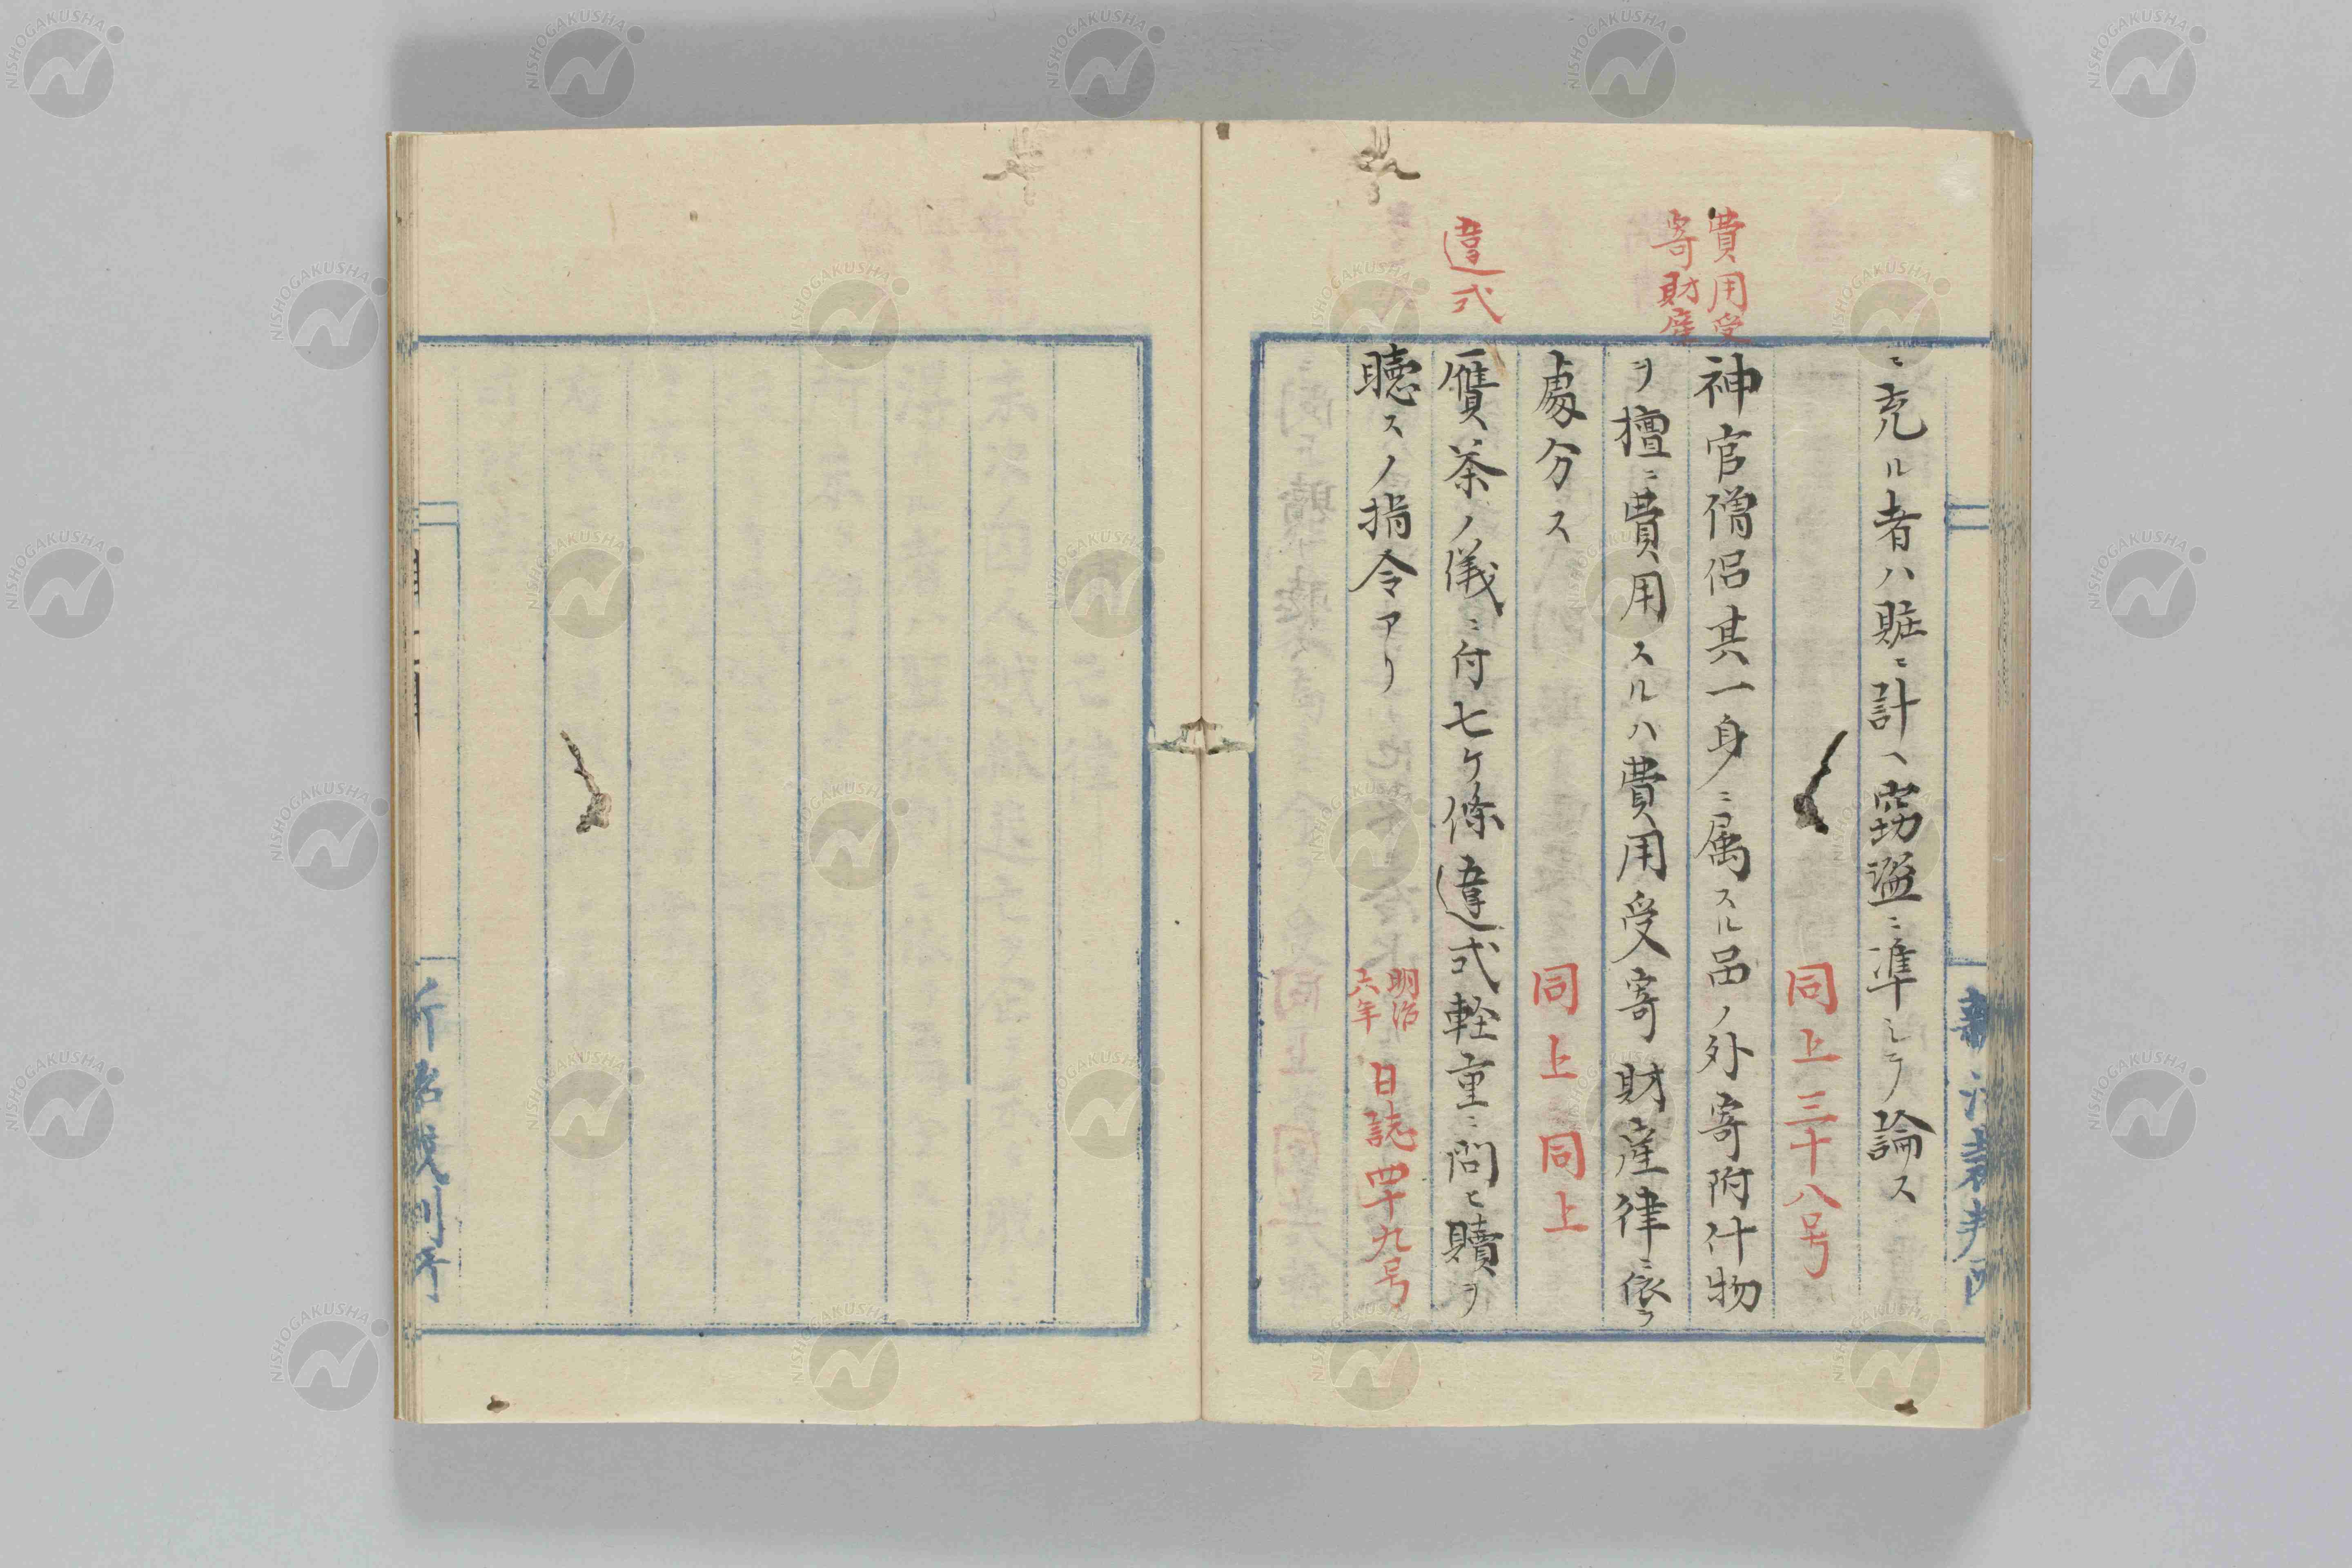 ニ充ル者ハ賍ニ計ヘ窃盗ニ準シテ論ス
同上三十八号
費用受
寄財産
神官僧侶其一身ニ属スル品ノ外寄附什物
ヲ擅ニ費用スルハ費用受寄財産律ニ依テ
處分ス
同上同上
違式
贋茶ノ儀ニ付七ケ條違式軽重ニ問ヒ贖ヲ
聴スノ指令アリ
明治
六年
日誌四十九号
新治裁判所
NISHOGAKUSHA